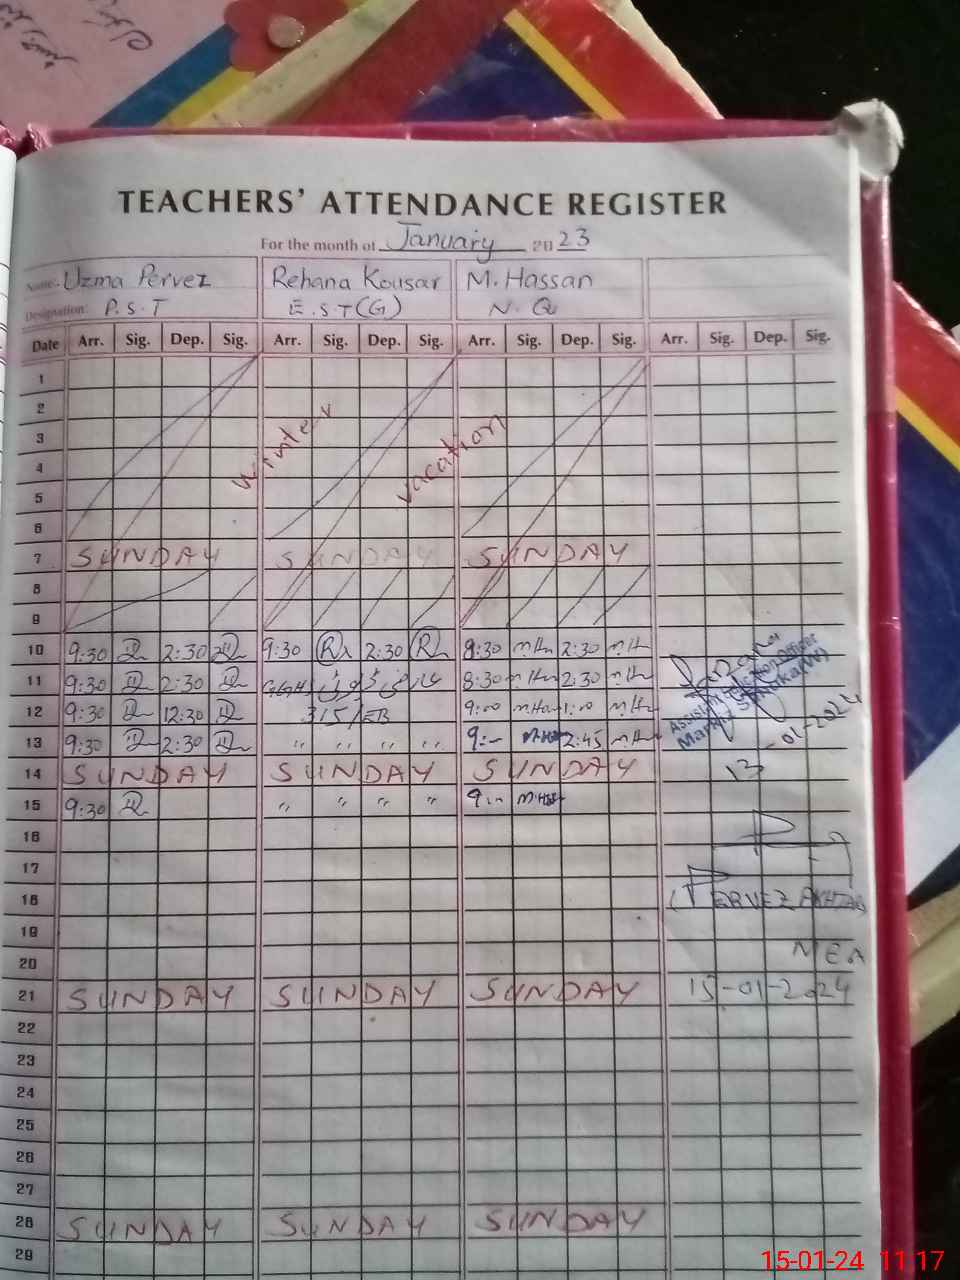 TEACHERS' ATTENDANCE REGISTER
For the month of January 2023
Name: Uzma Pervez Rehana Kousar M. Hassan
Designation: P.S.T E.S.T(G) N.Q
Date Arr. Sig. Dep. Sig. Arr. Sig. Dep. Sig. Arr. Sig. Dep. Sig. Arr. Sig. Dep. Sig.
1
2
3
winter vacation
4
5
6
7 SUNDAY SUNDAY SUNDAY
8
9
10 9:30 2:30 9:30 R 2:30 R 8:30 m.Hn 2:30 m.Hn
11 9:30 2:30 8:30 m.Hn 2:30 m.Hn
12 9:30 12:30 315/EB 9:00 m.Han 1:00 m.Hn
13 9:30 2:30 " " " " 9:- m.Han 2:45 m.Hn
Assistant Education Officer
13 -01-2024
14 SUNDAY SUNDAY SUNDAY
15 9:30 " " " " 9:- m.Han
16
17
18 (PERVEZ AKHTAR)
19
20 MEA
21 SUNDAY SUNDAY SUNDAY 15-01-2024
22
23
24
25
26
27
28 SUNDAY SUNDAY SUNDAY
29
15-01-24 11:17